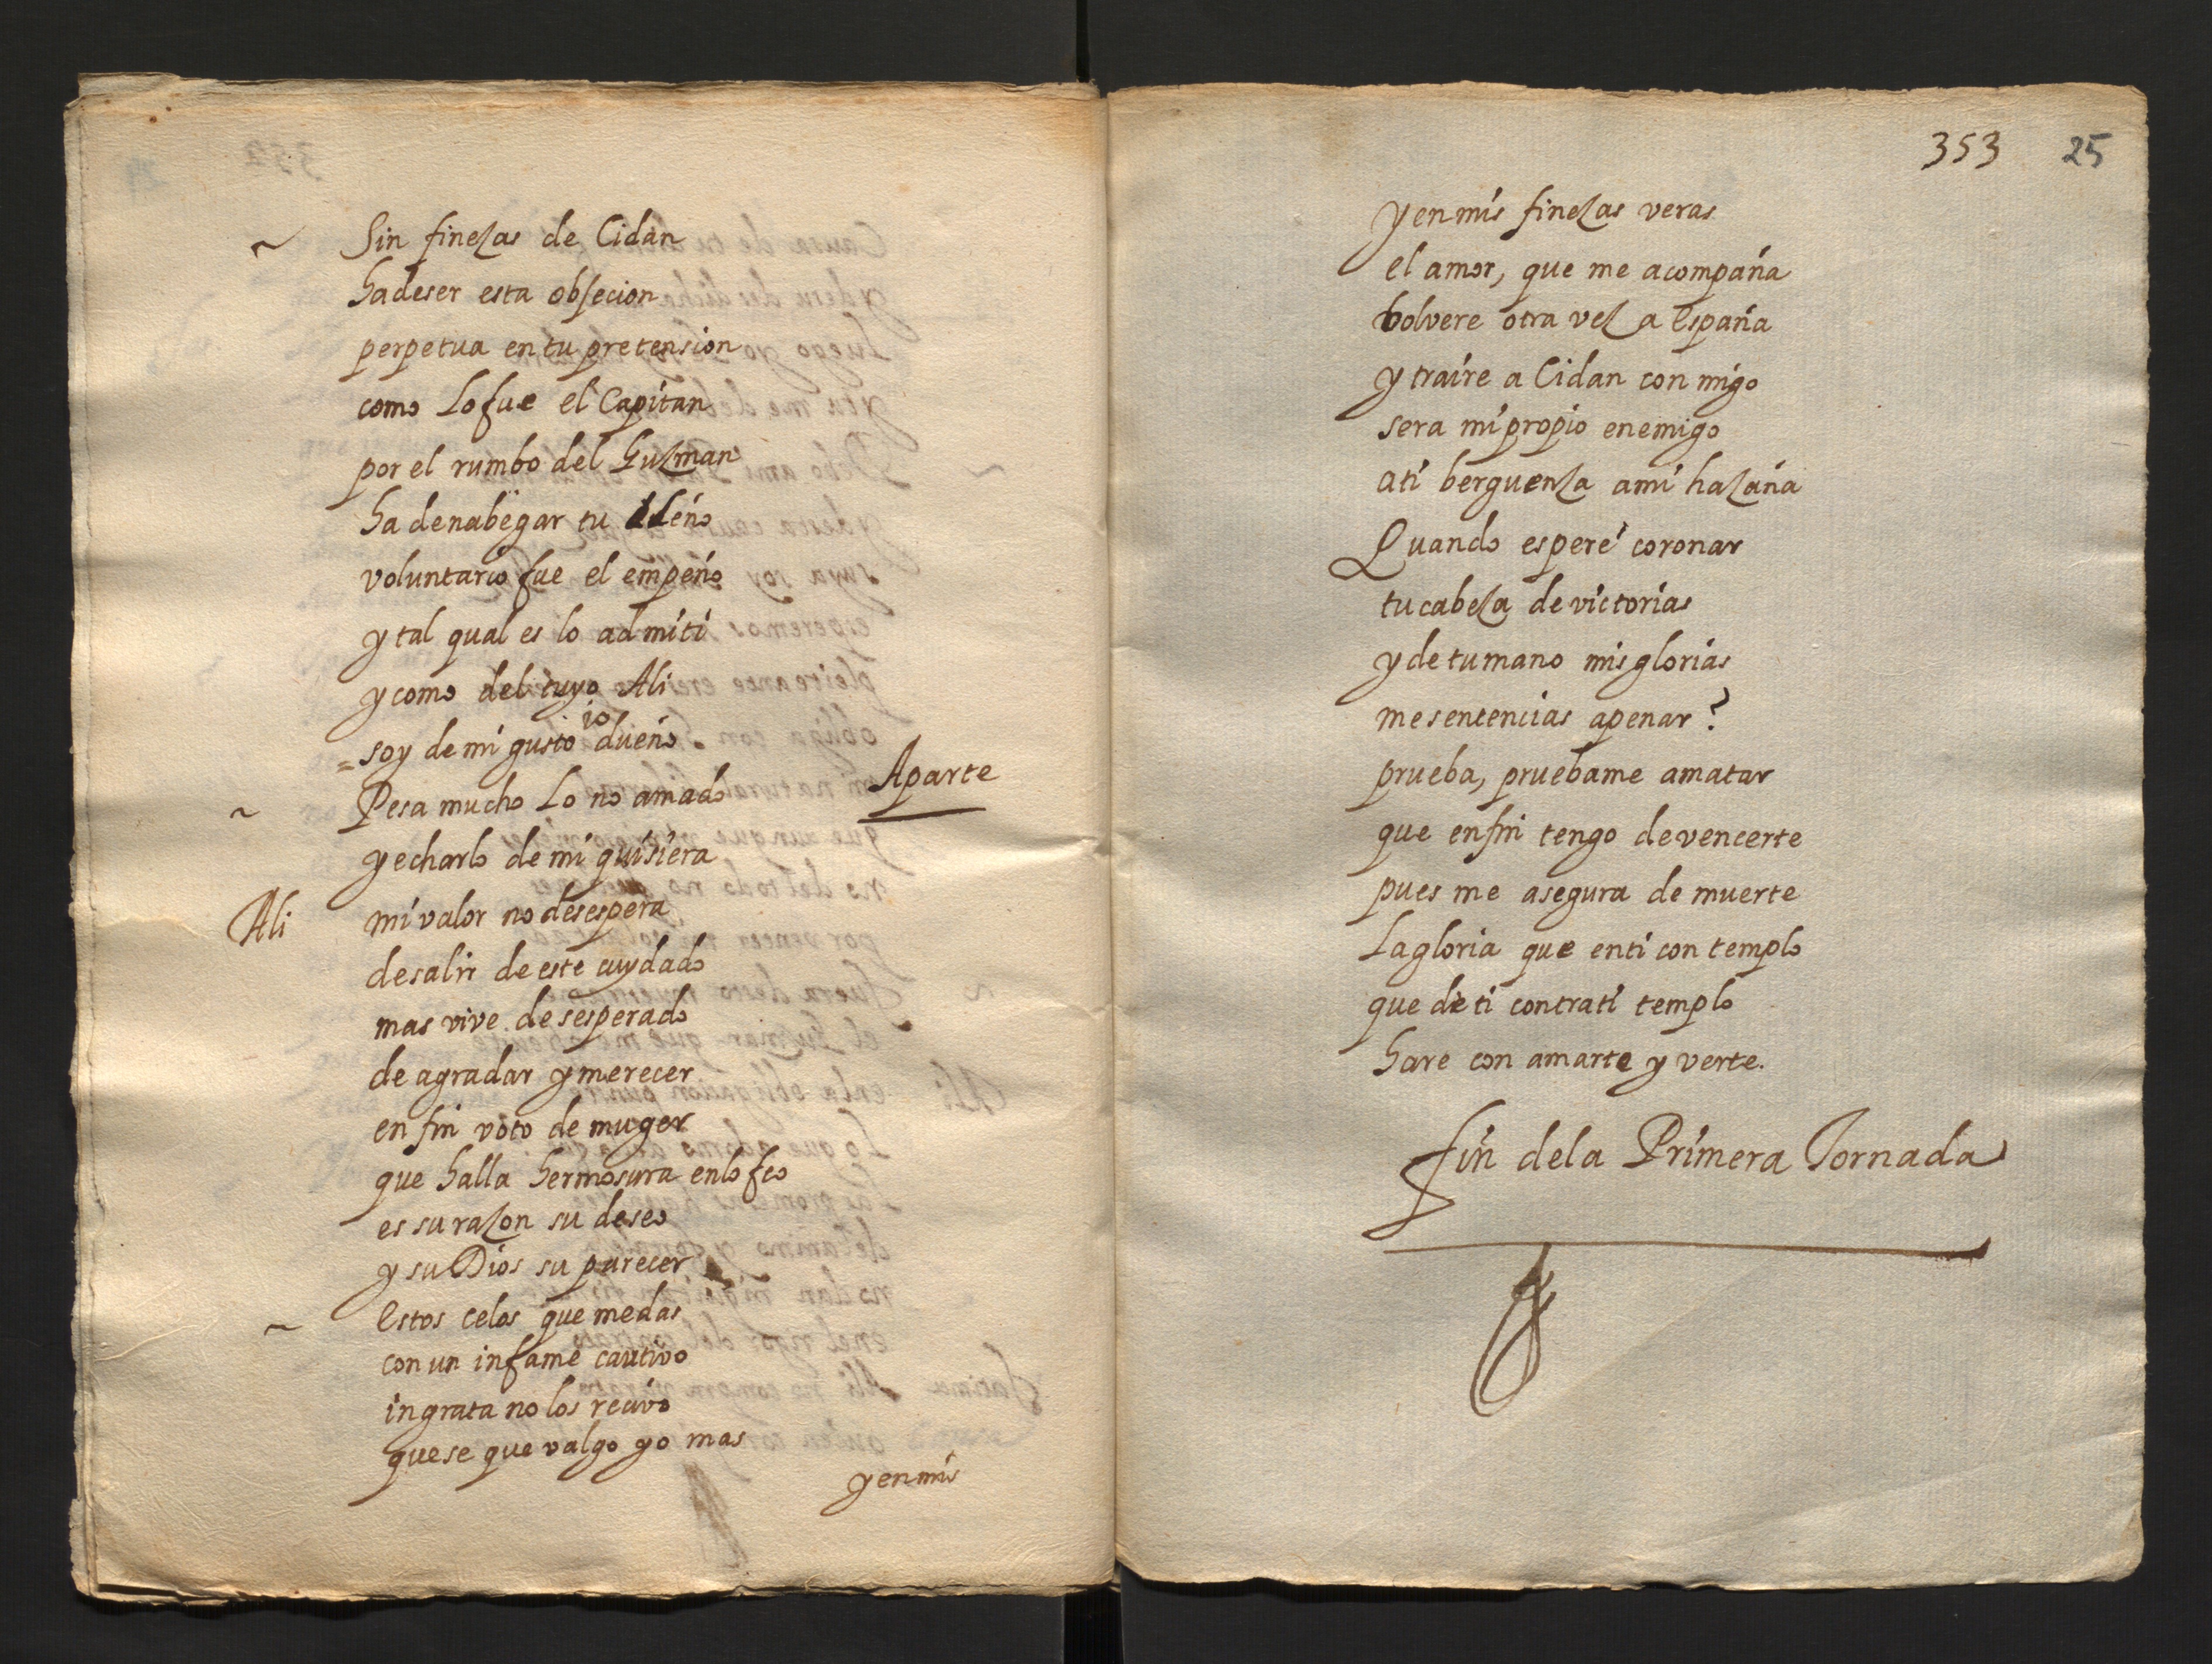 ~ Sin finezas de Cidan
ha deser esta obsecion
perpetua en tu pretension
como Lo fue el Capitan
por el rumbo del Guzman
ha denabegar tu
voluntario fue el empeño
y tal qual es lo admiti
y como del tuyo Ali
=soy de mi gusto io dueño.
~ Pesa mucho Lo no amado Aparte
y echarlo de mi quisiera
Ali mi valor no desespera
desalir de este cuydado
mas vive desesperado
de agradar y merecer
en fin voto de muger
que halla hermosura enlo feo
es su razon su deseo
y su Dios su parecer
~ Estos celos que medas
con un infame cautivo
ingrata no los recivo
quese que valgo yo mas
yenmis
353 25
yenmis finezas veras
el amor, que me acompaña
bolvere otra vez a España
y traire a Cidan con migo
sera mi propio enemigo
ati berguenza ami hazaña
Quando esperé coronar
tu cabeza de victorias
y de tumano mis glorias
me sentencias apenar?
prueba, pruebame amatar
que enfin tengo devencerte
pues me asegura de muerte
La gloria que enti con templo
que de ti contrati templo
hare con amarte y verte.
fin dela Primera Jornada